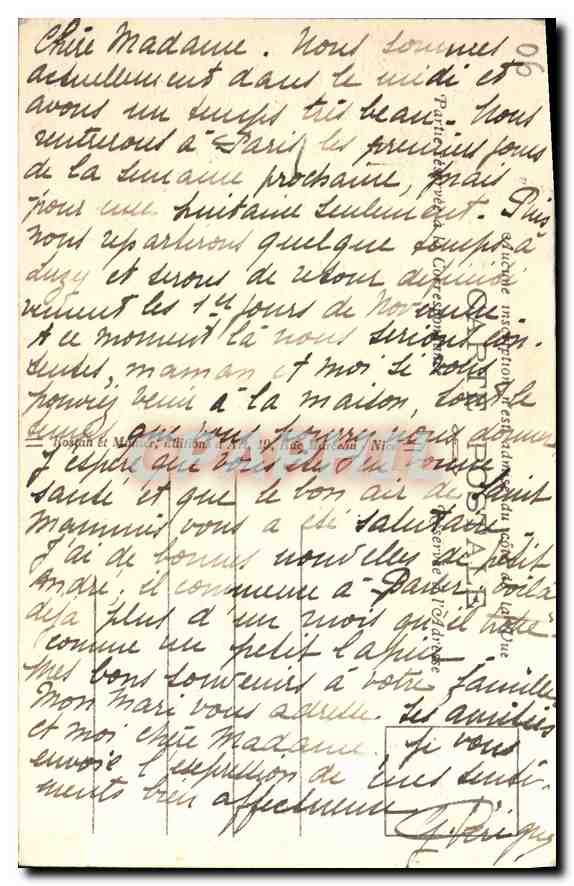 Chère Madame. Nous sommes
actuellement dans le midi et
avons un temps très beau. Nous
rentrerons à Paris les premiers jours
de la semaine prochaine, mais
pour une huitaine seulement. Puis
nous repartirons quelque temps à
Luzy et serons de retour
les 1er jours de Novembre
A ce moment là nous serions con-
tentes, maman et moi si vous
pouviez venir à la maison, tout le
temps que vous pourrez nous donner.
J'espère que vous êtes en bonne
santé et que le bon air de Saint
Mammès vous a été salutaire.
J'ai de bonnes nouvelles de petit
André, il commence à parler, voilà
déjà plus d'un mois qu'il trotte
comme un petit lapin.
Mes bons souvenirs à votre famille
Mon Mari vous adresse ses amitiés
et moi chère Madame je vous
envoie l'expression de mes senti-
ments bien affectueux
06
CARTE POSTALE
Partie réservée à la Correspondance
Aucune inscription n'est admise du côté de la Vue
réservé à l'Adresse
CPARAMA